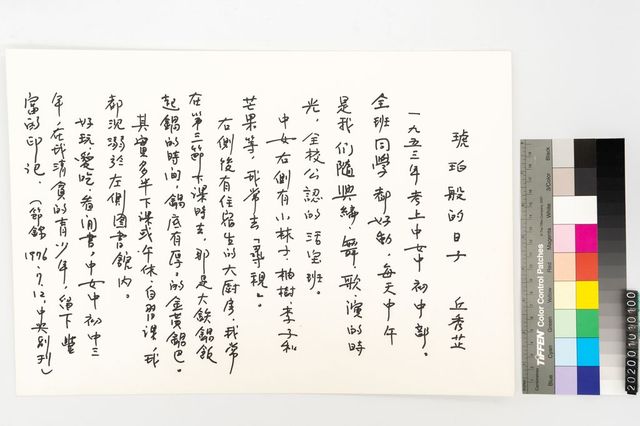 琥珀般的日子　丘秀芷
一九五三年考上中女中初中部。
全班同學都好動，每天中午
是我们隨興編、舞、歌、演的時
光，全校公認的活宝班。
中女右側有小林子，柚樹、李子和
芒果等，我常去「尋親」。
右側後有住宿生的大厨房，我常
在第三節下課時去，那是大鉄鍋飯
起鍋的時间，鍋底有厚厚的金黃鍋巴。
其實多半下課或午休、自習課，我
都沉溺於左側圖書館内。
好玩、愛吃、看闲書，中女中初中三
年，在我清貧的青少年，留下豐
富的印记。（節錄1996.9.12.中央副刊）
Black
3/Color
White
Magenta
Red
Yellow
Green
Cyan
Blue
TIFFEN Color Control Patches
2020010010100